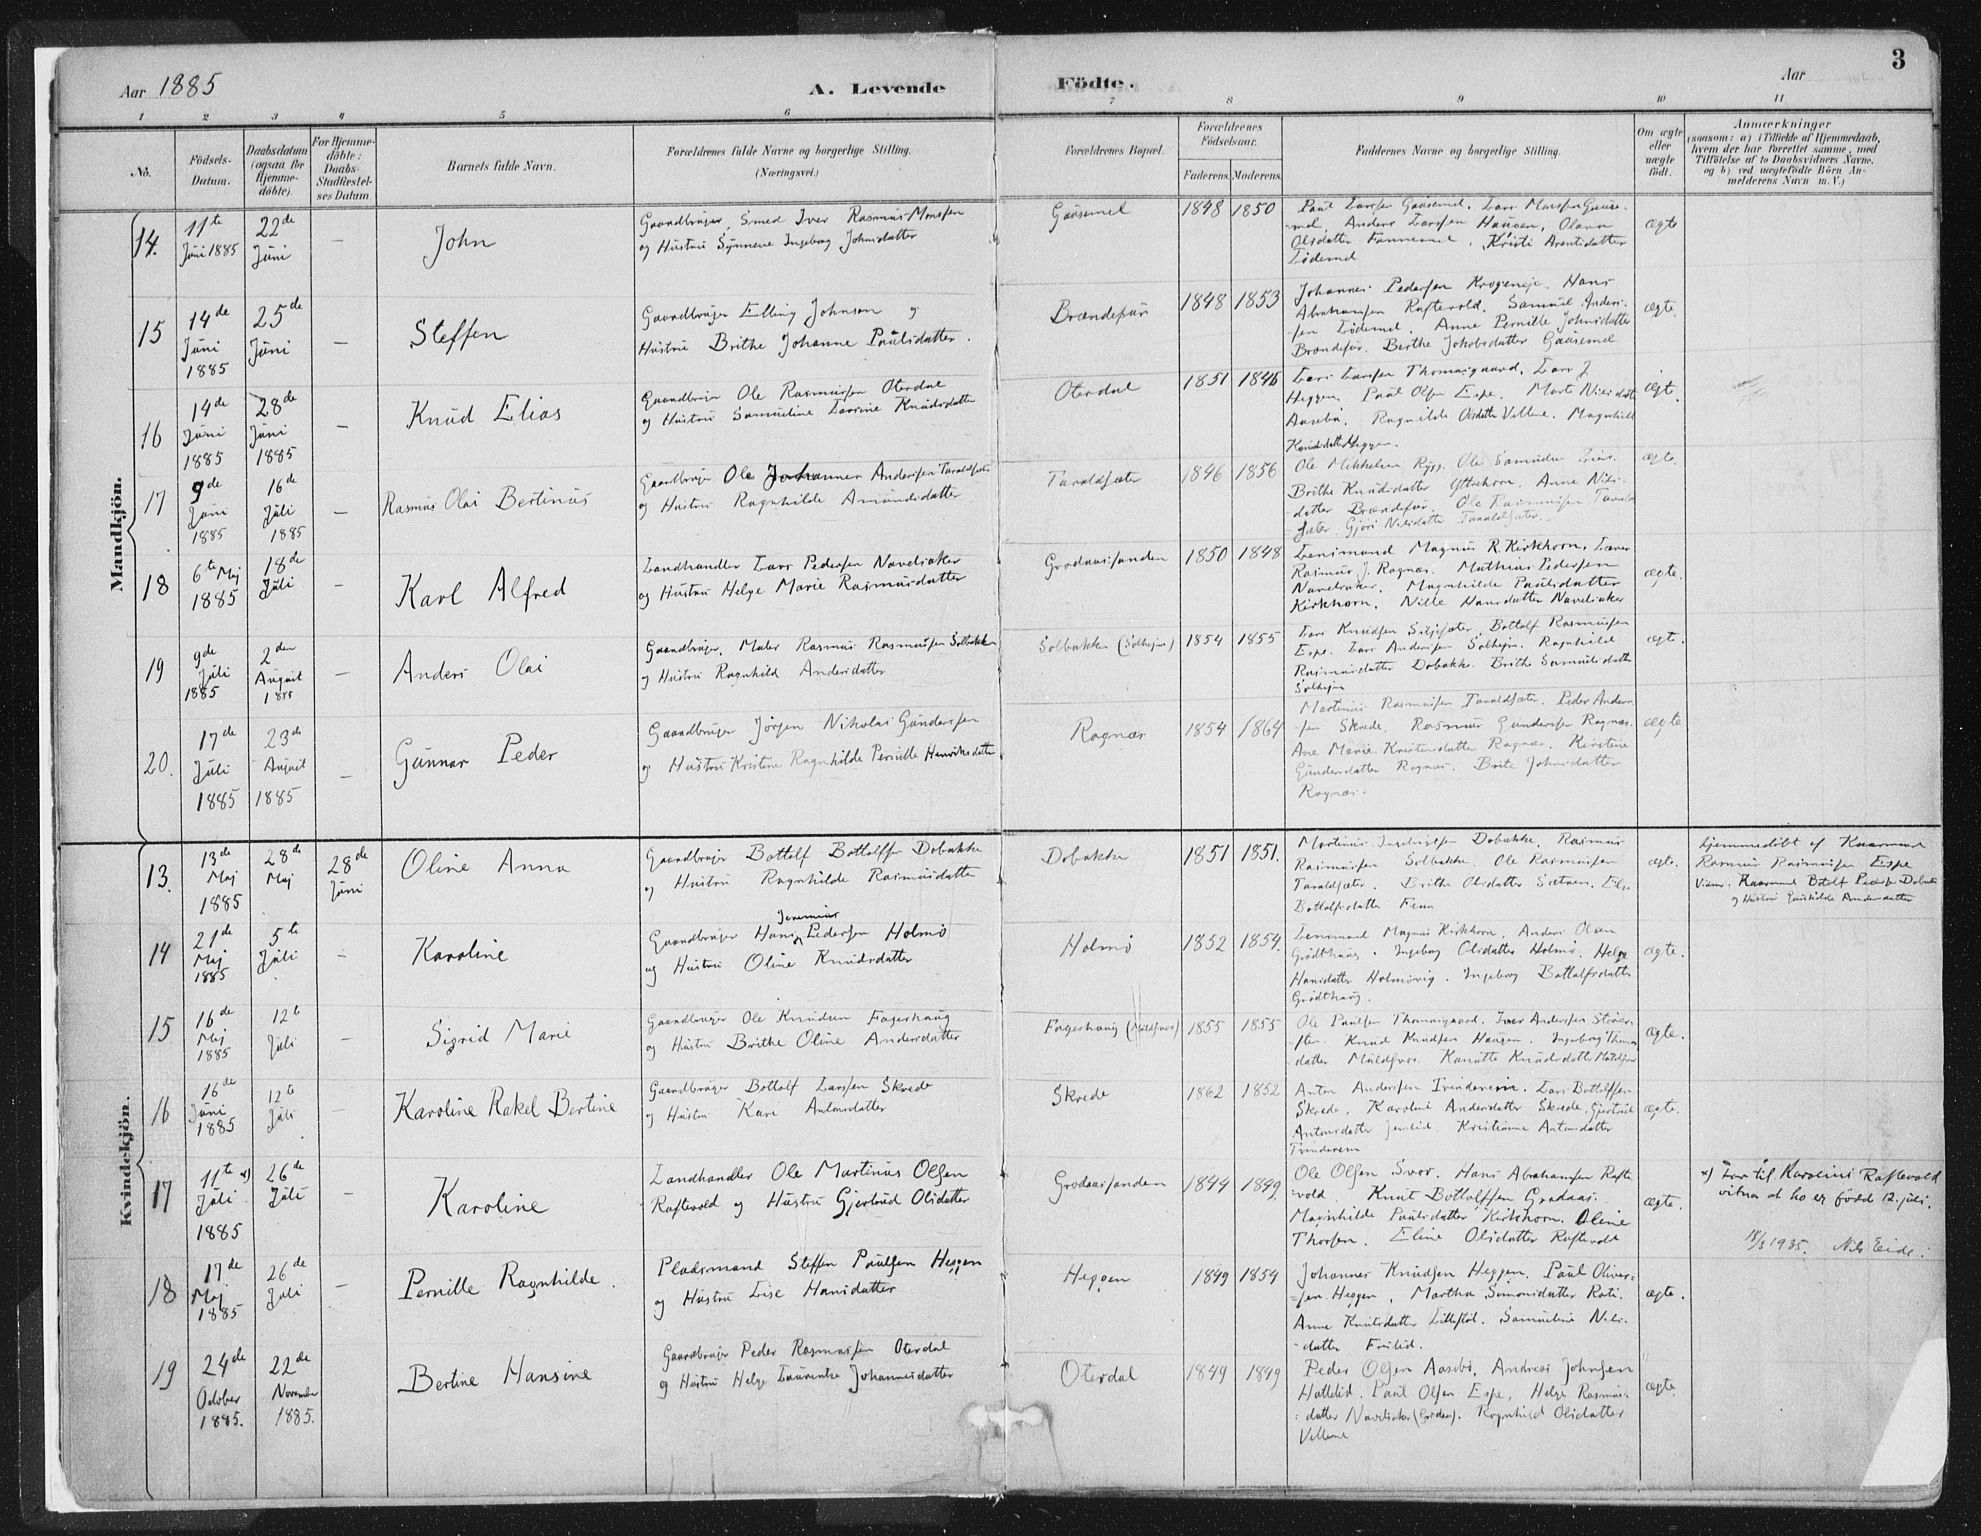 Aar 1885
A. Levende Födte.
Aar
3
1 2 3 4 5 6 7 8 9 10 11
No.
Födsels-Datum.
Daabsdatum (ogsaa for Hjemme-döbte).
For Hjemme-döbte: Daabs-Stadfæstel-ses Datum
Barnets fulde Navn.
Forældrenes fulde Navne og borgerlige Stilling.
(Næringsvei.)
Forældrenes Bopæl.
Forældrenes Födselsaar.
Faderens. Moderens.
Faddernes Navne og borgerlige Stilling.
Om ægte eller uægte födt.
Anmærkninger
(saasom: a) i Tilfælde af Hjemmedaab,
hvem der har forrettet samme, med
Tilföielse af to Daabsvidners Navne,
og b) ved uægtefödte Börn An-
melderens Navn m. V.)
Mandkjön.
14. 11te Juni 1885 22de Juni – John
Gaardbruger, Smed Iver Rasmus Monssen
og Hustru Synneve Ingeborg Johnsdatter
Gaasemel 1848 1850
Paul Larssen Gaasemel, Lars Monssen Gaase-
mel, Anders Larssen Haugen, Olava
Olsdatter, Kristi Arentsdatter
Lödemel
ægte
15 14de Juni 1885 25de Juni – Steffen
Gaardbruger Elling Johnsen og
Hustru Brithe Johanne Paulsdatter.
Brændefur 1848 1853
Johannes Pedersen, Hans
Abrahamsen Raftevold, Samuel Anders-
sen Lödemel, Anne Pernille Johnsdatter
Brændefur. Berthe Jakobsdatter Gaasemel
ægte.
16 14de Juni 1885 28de Juni 1885 – Knud Elias
Gaardbruger Ole Rasmussen Oterdal
og Hustru Samueline Larsine Knudsdatter
Oterdal 1851 1846
Lars Larssen Thomasgaard, Lars J
Heggen, Paul Olsen Espe. Marte Nilsdatt
Aasebö, Ragnilde Olsdatter Vellene. Magnhild
Knudsdatter Heggen.
ægt.
17 9de Juni 1885 16de Juli 1885 – Rasmus Olai Bertinus
Gaardbruger Ole Johannes Anderssen Taraldsæter
og Hustru Ragnhilde Amundsdatter
Taraldsæter 1846 1856
Ole Mikkelsen Rygg. Ole Samuelsen
Brithe Knudsdatter Yttrehorn, Anne Nils-
datter Brændefur, Ole Rasmussen Tarald-
sæter. Gjöri Nilsdatter Taraldsæter.
ægte.
18 6te Maj 1885 18de Juli – Karl Alfred
Landhandler Lars Pedersen Navelsaker
og Hustru Helge Marie Rasmusdatter
Grodaassanden 1850 1848
Lensmand Magnus R. Kirkhorn, Lærer
Rasmus J. Rognæs. Mathias Pedersen
Navelsaker. Magnhilde Paulsdatter
Kirkhorn. Nille Hansdatter Navelsaker
ægte.
19 9de Juli 1885 2den August 1885 – Anders Olai
Gaardbruger, Maler Rasmus Rasmussen Solbakken
og Hustru Ragnhild Andersdatter
Solbakken (Solhejm) 1854 1855
Lars Knudsen Siljesæter, Bottolf Rasmussen
Espe. Lars Andersen Solhejm. Ragnhild
Rasmusdatter Dobakke. Brithe Samuelsdatter
Solhejm
ægte.
20. 17de Juli 1885 23de August 1885 – Gunnar Peder
Gaardbruger Jörgen Nikolai Gunderssen
og Hustru Kristine Ragnhilde Pernille Henriksdatter
Rognæs 1854 1864
Martinus Rasmussen Taraldsæter. Peder Anders-
sen Skrede. Rasmus Gunderssen Rognæs.
Ane Marie Kristensdatter Rognæs. Kirstine
Gundersdatter Rognæs. Brite Johnsdatter
Rognæs.
ægte
Kvindekjön.
13. 13de Maj 1885 28de Maj 28de Juni Oline Anna
Gaardbruger Bottolf Bottolfsen Dobakke
og Hustru Ragnhilde Rasmusdatter
Dobakke 1851 1851.
Martinus Ingebrigtsen Dobakke. Rasmus
Rasmussen Solbakke. Ole Rasmussen
Taraldsæter. Brithe Olsdatter Sætren. Else
Bottolfsdatter
ægte.
hjemmedöbt af Kaarmand
Rasmus Rasmussen Espe
Vidner: Kaarmand Botolf Pedersen Dobakke
og Hustru Gunhilde Andersdatter
14 21de Maj 1885 5te Juli – Karoline
Gaardbruger Hans Jeremias Pedersen Holmö
og Hustru Oline Knudsdatter
Holmö 1852 1854.
Lensmand Magnus Kirkhorn, Anders Olsen
Grödthaug. Ingeborg Olsdatter Holmö. Helge
Hansdatter Holmövig. Ingeborg Bottolfsdatter
Grödthaug.
ægte.
15 16de Maj 1885 12te Juli – Sigrid Marie
Gaardbruger Ole Knudsen Fagerhaug
og Hustru Brithe Oline Andersdatter
Fagerhaug (Maldsvor) 1855 1855
Ole Paulsen Thomasgaard. Iver Anderssen
Knud Knudsen Haugen. Ingeborg Thomas-
datter Maldsvor. Kanutte Knudsdatter Maldsvor
ægte.
16 16de Juni 1885 12te Juli – Karoline Rakel Bertine
Gaardbruger Bottolf Larssen Skrede
og Hustru Kari Antonsdatter
Skrede 1862 1852
Anton Anderssen Tvinderein. Lars Bottolfsen
Skrede, Karoline Andersdatter Skrede, Gjertrud
Antonsdatter. Kristianne Antonsdatter
Tvinderein
ægte.
17 11te x) Juli 1885 26de Juli – Karoline
Landhandler Ole Martinus Olsen
Raftevold og Hustru Gjertrud Olsdatter
Grodaassanden 1844 1849.
Ole Olsen Svor. Hans Abrahamsen Rafte-
vold. Knut Bottolfsen Grodaas.
Magnhilde Paulsdatter Kirkhorn. Oline
Thorsen. Eline Olsdatter Raftevold
ægte.
x) Far til Karoline Raftevold
vitnar at ho er fødd 12. juli.
18/3 1935. Nils Eide.
18 17de Maj 1885 26de Juli – Pernille Ragnhilde.
Pladsmand Steffen Paulsen Heggen
og Hustru Lise Hansdatter
Heggen 1849 1854
Johannes Knudsen Heggen. Paul Oliver-
sen Heggen, Martha Simonsdatter Roti.
Anne Knutsdatter. Samueline Nils-
datter
ægte.
19 24de October 1885. 22de November 1885. Bertine Hansine
Gaardbruger Peder Rasmussen Oterdal
og Hustru Helge Laurentse Johannesdatter
Oterdal 1849 1849
Peder Olsen Aasebö, Andreas Johnsen
Hattelid. Paul Olsen Espe, Helge Rasmus-
datter Navelsaker (Grodaas). Ragnhild Olsdatter
Vellene
ægte.